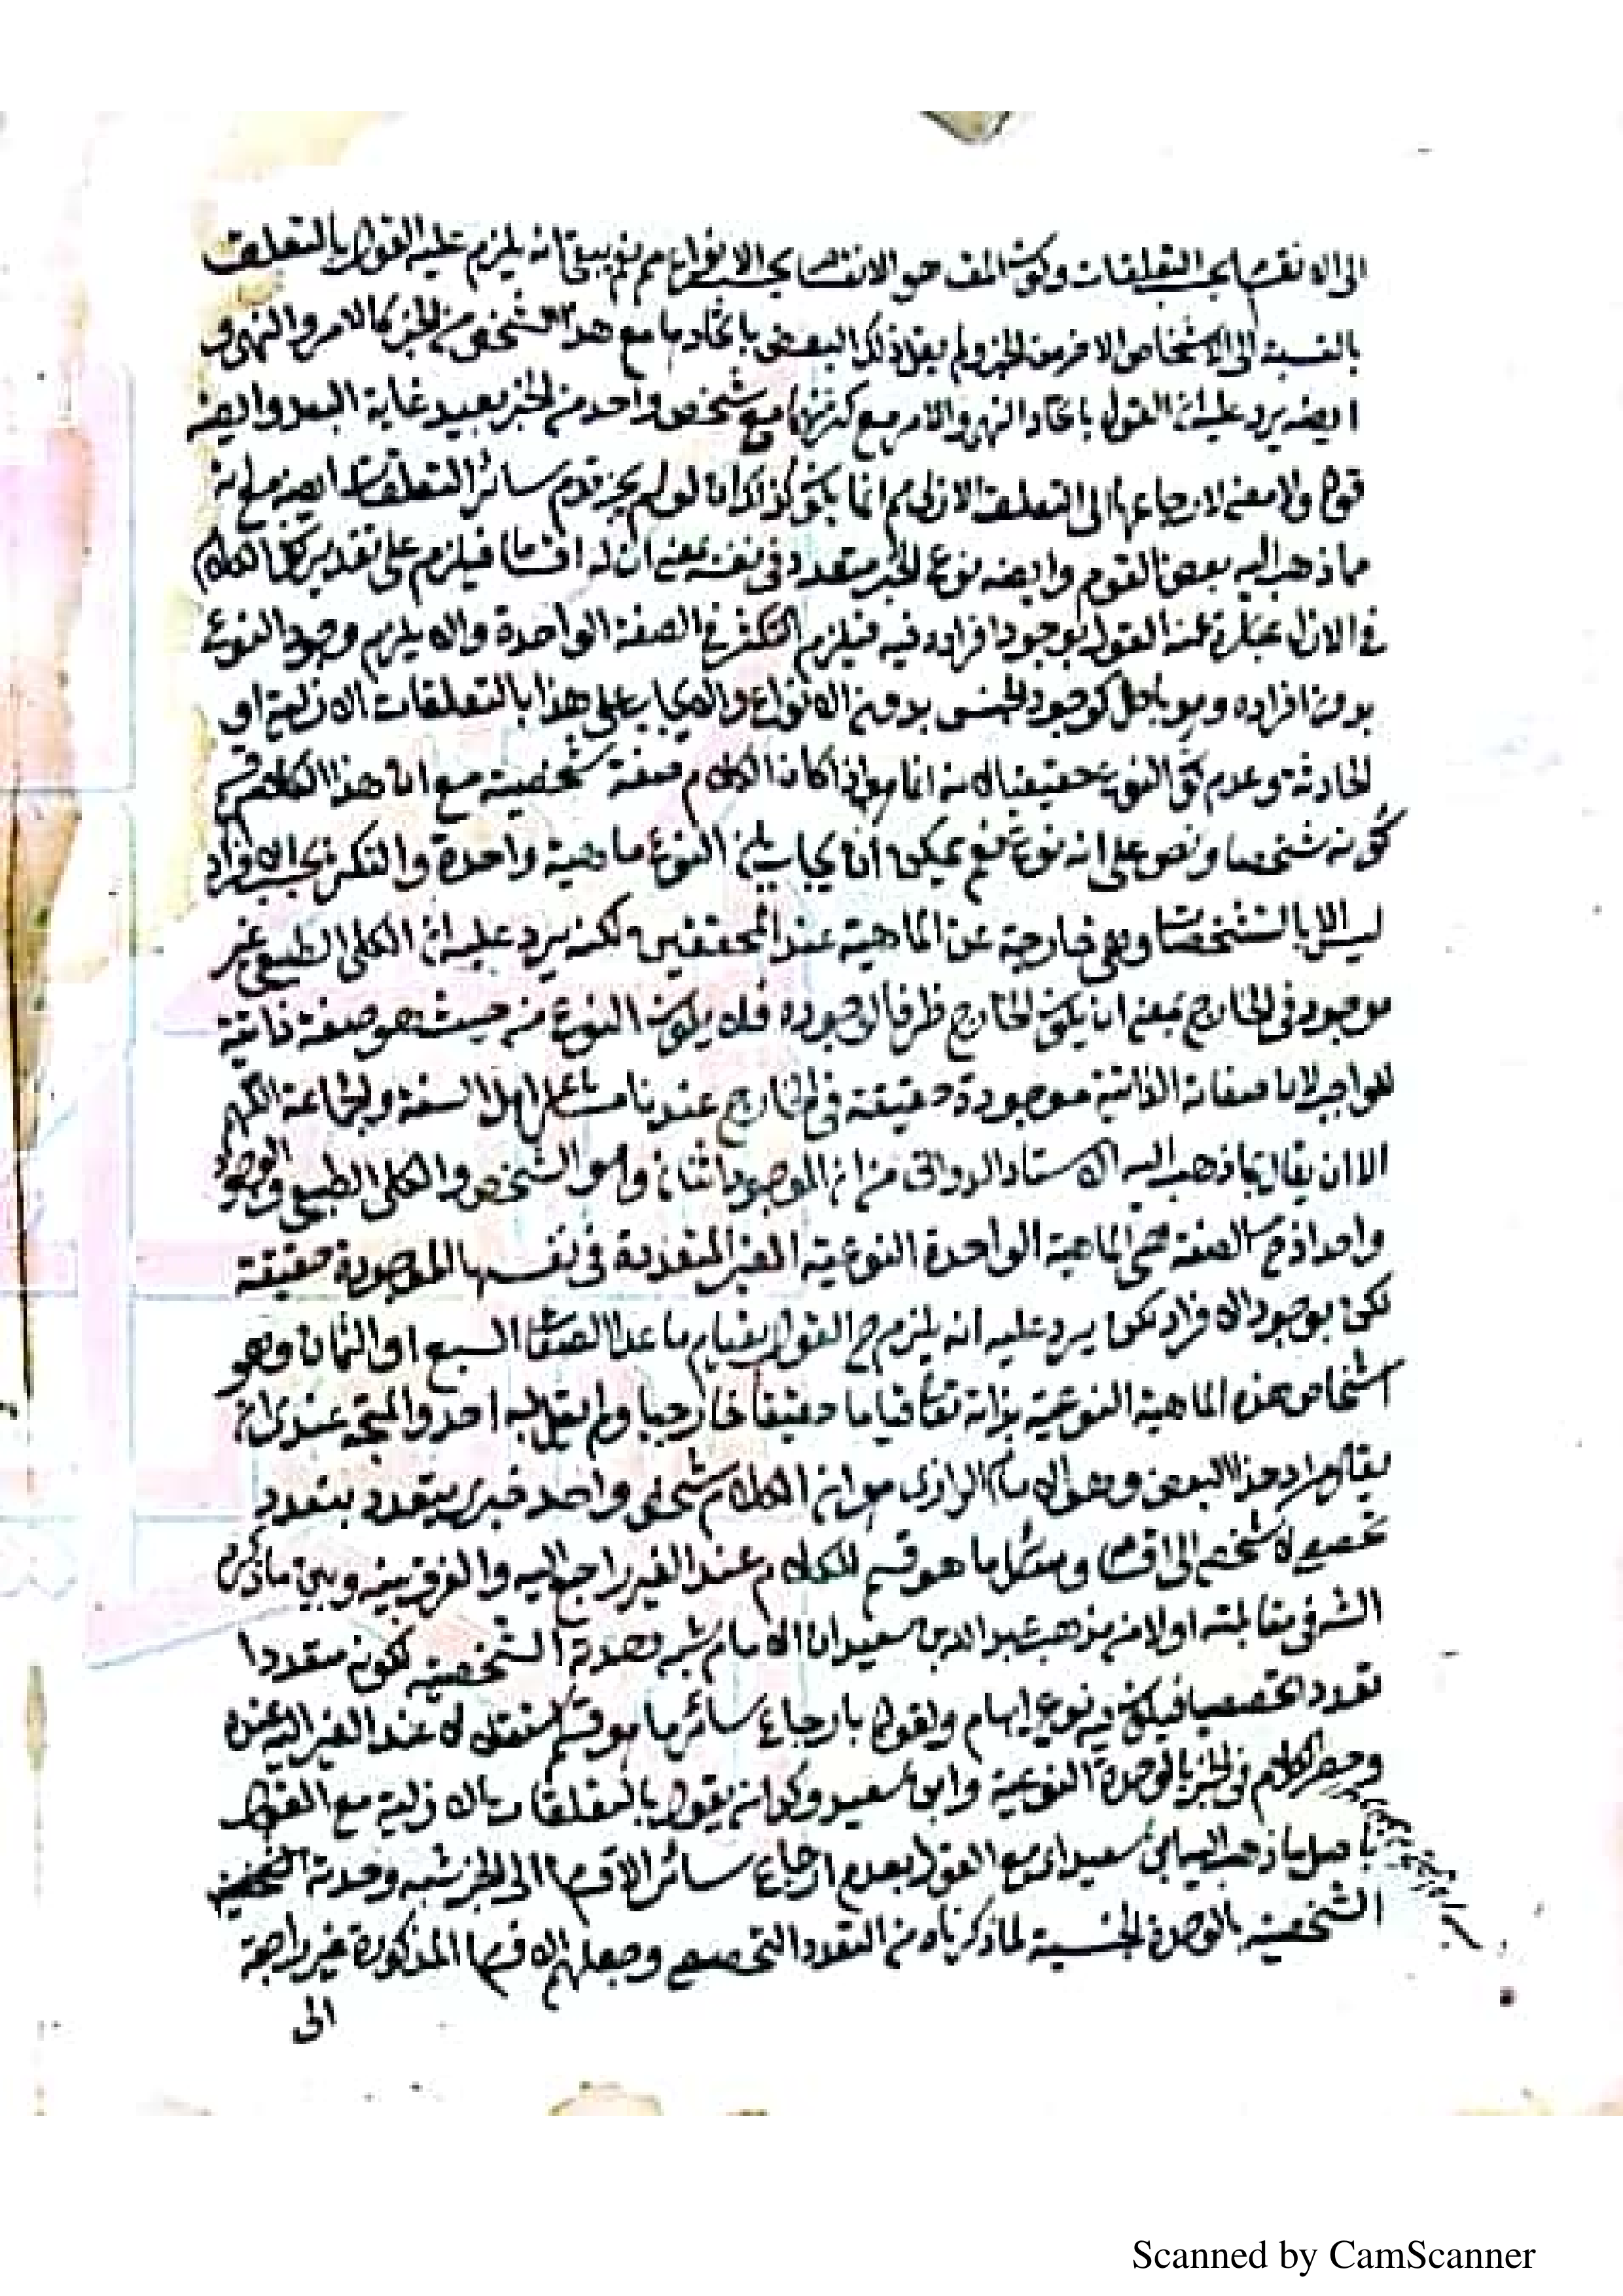 الى الانقسام بحسب التعلقات وكون المقسم هو الانقسام بحسب الانواع مم نعم يبقى انه يلزم عليه القول بالتعلق
بالنسبة الى الاشخاص الاخر من الخبر ولم يقل ذلك البعض باتحادها مع هذا الشخص من الخبر كالامر والنهى و
ايضه يرد عليه ان القول باتحاد النهى والامر مع كثرتهما مع شخص واحد من الخبر بعيد غاية البعد وايضه
قوله ولا معنى لارجاعها الى التعلق الازلى مم انما يكون كذلك ان لو لم يجز قدم سائر التعلقات ايضه على انه
ما ذهب اليه بعض القوم وايضه نوع الخبر متعدد فى نفسه بمعنى ان له اقساما فيلزم على تقدير كون الكلام
فى الازل عبارة عنه القول بوجود افراده فيه فيلزم التكثر فى الصفة الواحدة والا يلزم وجود النوع
بدون افراده وهو باطل كوجود الجنس بدون الانواع والجواب على هذا بالتعلقات الازلية او
الحادثة وعدم كون النوع حقيقيا لانه انما هو اذا كان الكلام صفة شخصية مع ان هذا الكلام
كونه شخصا ونص على انه نوع نعم يمكن ان يجاب بان النوع ماهية واحدة والتكثر بحسب الافراد
ليس الا بالتشخصات وهى خارجة عن الماهية عند المحققين لكنه يرد عليه ان الكلى الطبيعى غير
موجود فى الخارج بمعنى ان يكون الخارج ظرفا لوجوده فلا يكون النوع من حيث هو صفة ذاتية
للواجب لان صفاته الذاتية موجودة حقيقة فى الخارج عندنا معاشر اهل السنة والجماعة اللهم
الا ان يقال بما ذهب اليه الاستاد الدوانى من ان الموجود اثنان وهو الشخص والكلى الطبيعى والوجود
واحد اذ ح الصفة هى الماهية الواحدة النوعية الغير المتعددة فى نفسها الموجودة حقيقة
لكن بوجود الافراد لكن يرد عليه انه يلزم ح القول بقيام ما عدا الصفات السبع او الثمان وهو
اشخاص هذه الماهية النوعية بذاته تعالى قياما حقيقيا خارجيا ولم يقل به احد والمتجه عندى ان
يقال مراد هذا البعض وهو الامام الرازى هو ان الكلام شخص واحد خبرى يتعدد بتعدد
الى اقسام وكل ما هو قسم للكلام عند الغير راجع اليه والفرق بينه وبين ما ذكره
الشه فى مقابلته اولا من مذهب عبد الله بن سعيد ان الامام شبه وحدته الشخصية لكونه متعددا
تعددا فيكون فيه نوع ابهام ولقوله بارجاع سائر ما هو قسم مستقل له عند الغير اليه عنده
وحصر الكلام فى الخبر بالوحدة النوعية وابن سعيد وكل من يقول بالتعلقات الازلية مع القول
باصل ما ذهب اليه ابن سعيد اى مع القول بعدم ارجاع سائر الاقسام الى الخبر شبه وحدته الشخصية
الشخصية بالوحدة الجنسية لما ذكرناه من التعدد وجعلهم الاقسام المذكورة غير راجعة
الى
Scanned by CamScanner